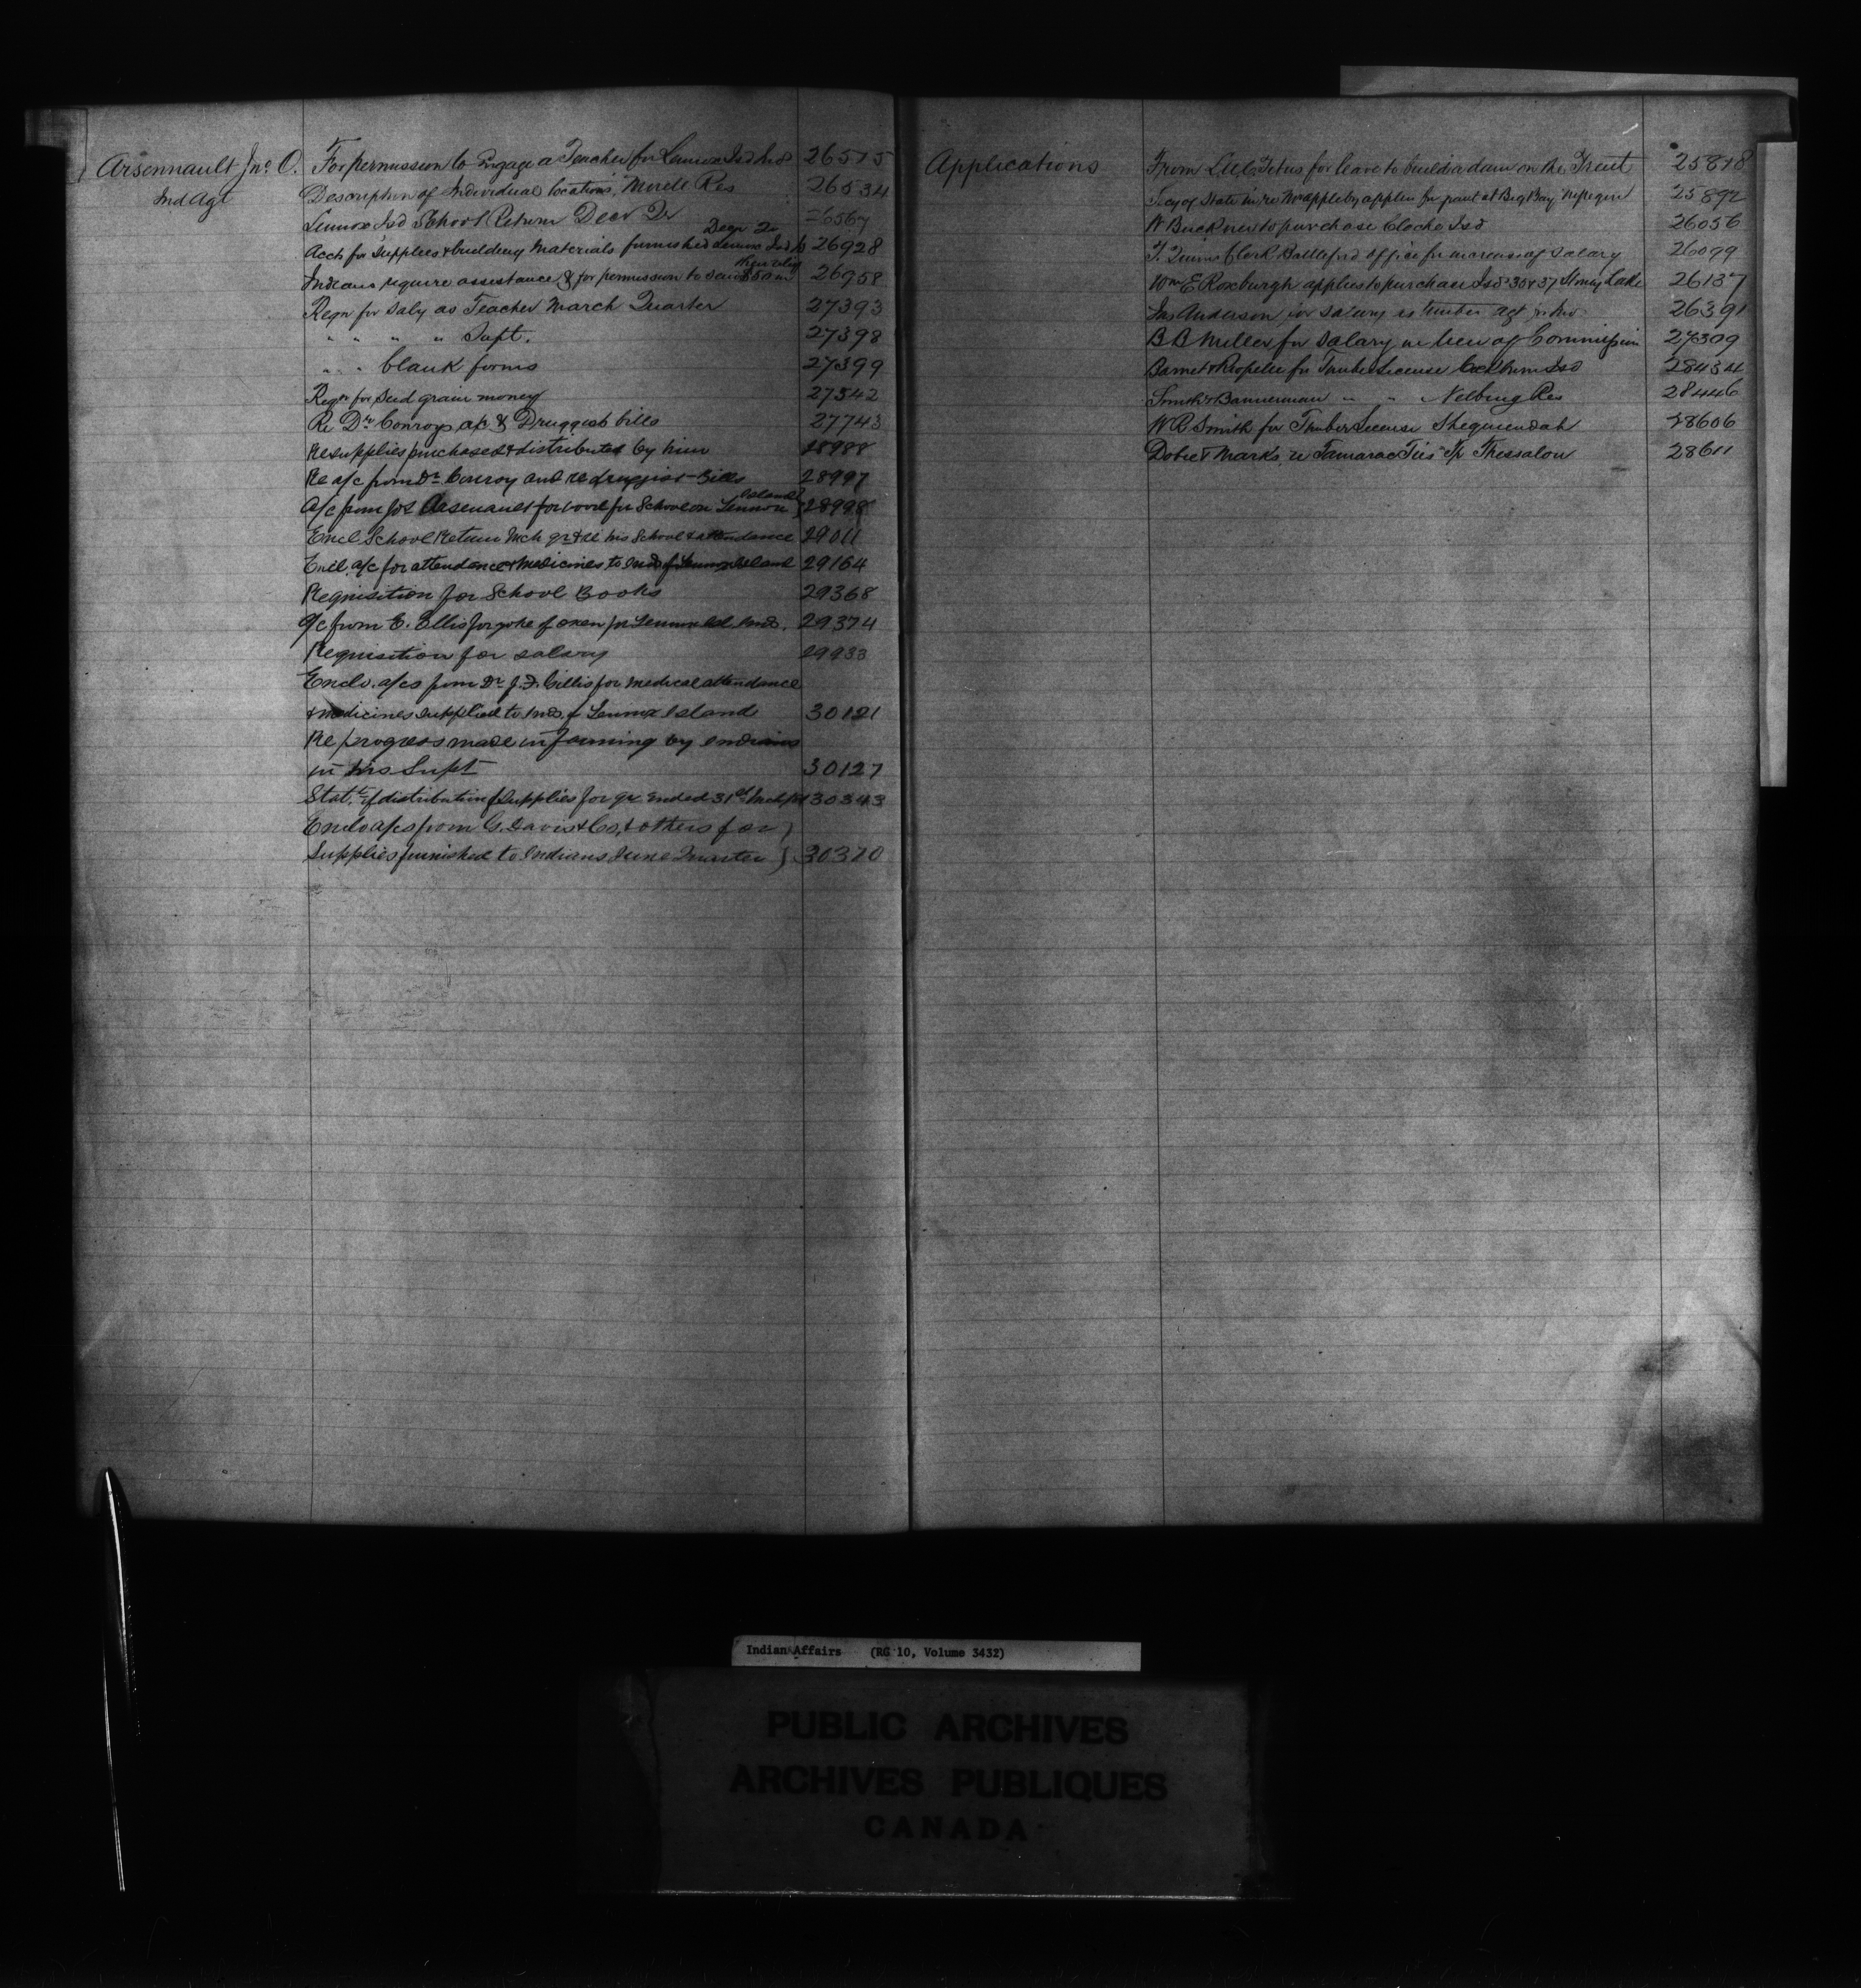 Arsennault Jno. O. For permission to Engage a Teacher for Lennox Isd Inds 26515
Ind Agt Description of Individual locations, Morell Res 26534
Lennox Isd School Return Decr Qr 6567
Decr Qr
Accts for Supplies & building materials furnished Lennox Isd 26928
Indians require assistance & for permission to 26958
Reqn for Saly as Teacher March Quarter 27393
" " " " Supt. 27398
" " blank forms 27399
Reqn for Seed grain money 27542
Re Dr Conroys a/c & Druggist bills 27743
Re supplies purchased & distributed by him 28988
Re a/c from Dr Conroy and re druggist Bills 28997
Island
A/c from Jos Arsenault for wood for School on Lennox 28998
Encl School Return Mch qr & re his School & attendance 29011
Encl. a/c for attendance & Medicines to Inds of Lennox Island 29164
Requisition for School Books 29368
A/c from E. Ellis for yoke of oxen for Lennox Isl. Inds. 29374
Requisition for salary 29933
Enclo. a/cs from Dr J. F. Gillis for medical attendance
& medicines supplied to Inds. of Lennox Island 30121
Re progress made in farming by Indians
in his Supt 30127
Statt of distribution of Supplies for qr ended 31st Mch 30343
Enclo a/cs from G. Davis & Co, & others for }
Supplies furnished to Indians June Quarter } 30370
Applications From Tetus for leave to build a dam on the Trent 25878
Secy of State in re applen for grant at Big Bay Nipegon 25892
W Buckner to purchase Clocke Isd 26056
T. Quinn Clerk Battleford office for increase of Salary 26099
Wm E Roxburgh applies to purchase Isds 36 & 37 Stoney Lake 26137
Jas Anderson for salary as timber agt 26391
B B Miller for Salary in lieu of Commission 27309
Barnet & for Timber License Cockburn Isd 28434
Smith & Bannerman " " Res 28446
W R Smith for Timber License Sheguiendah 28606
Dobie & Marks, re Tamarac Ties Tp Thessalon 28611
Indian Affairs (RG 10, Volume 3432)
PUBLIC ARCHIVES
ARCHIVES PUBLIQUES
CANADA